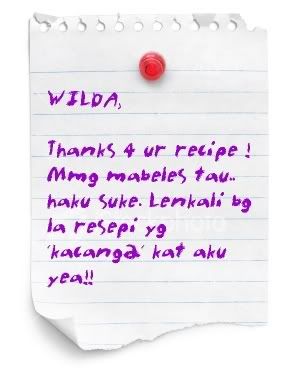 WILDA,
Thanks 4 ur recipe !
Mmg mabeles tau..
haku suke. Lenkali bg
la resepi yg
'kacanga' kat aku
yea!!